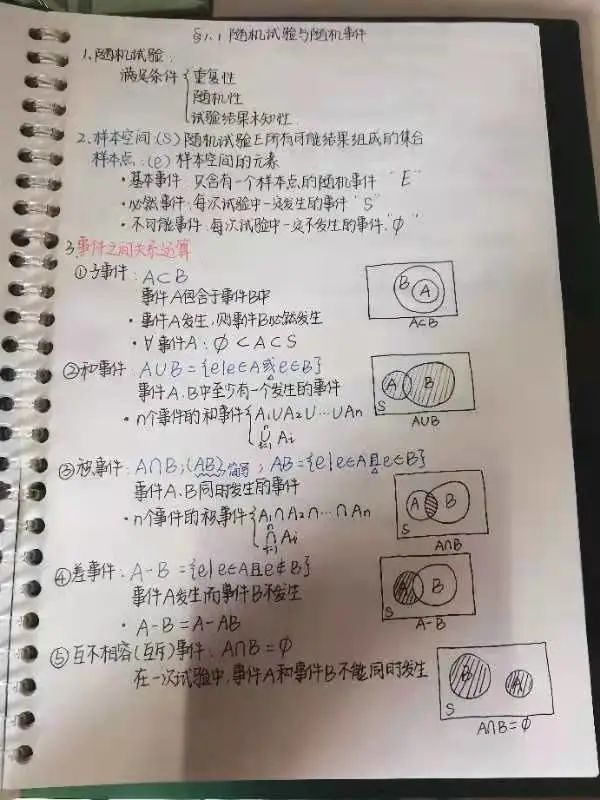 §1.1 随机试验与随机事件
1.随机试验:
满足条件{重复性
随机性
试验结果未知性.
2.样本空间:(S)随机试验E所有可能结果组成的集合
样本点:(e)样本空间的元素
·基本事件:只含有一个样本点的随机事件 "E"
·必然事件:每次试验中一定发生的事件"S"
·不可能事件:每次试验中一定不发生的事件."∅"
3.事件之间关系运算
①子事件: A⊂B
事件A包含于事件B中
·事件A发生,则事件B必然发生
·∀事件A:∅<A⊂S
B A
A⊂B
②和事件: A∪B={e|e∈A或e∈B}
事件A.B中至少有一个发生的事件
·n个事件的和事件{A₁∪A₂∪…∪An
n∪i=1 Ai
A B
S
A∪B
③积事件: A∩B;(AB)简写; AB={e|e∈A且e∈B}
事件A.B同时发生的事件
·n个事件的积事件{A₁∩A₂∩…∩An
n∩i=1 Ai
A B
S
A∩B
④差事件: A-B={e|e∈A且e∉B}
事件A发生而事件B不发生
·A-B=A-AB
A B
S
A-B
⑤互不相容(互斥)事件: A∩B=∅
在一次试验中,事件A和事件B不能同时发生
B A
S
A∩B=∅